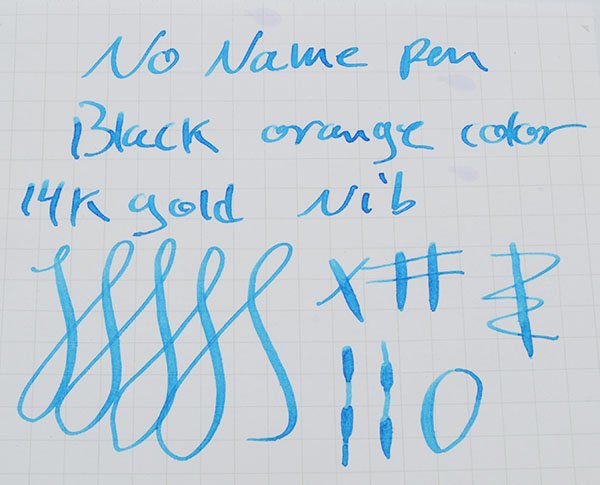 No Name pen
Black orange color
14K gold Nib